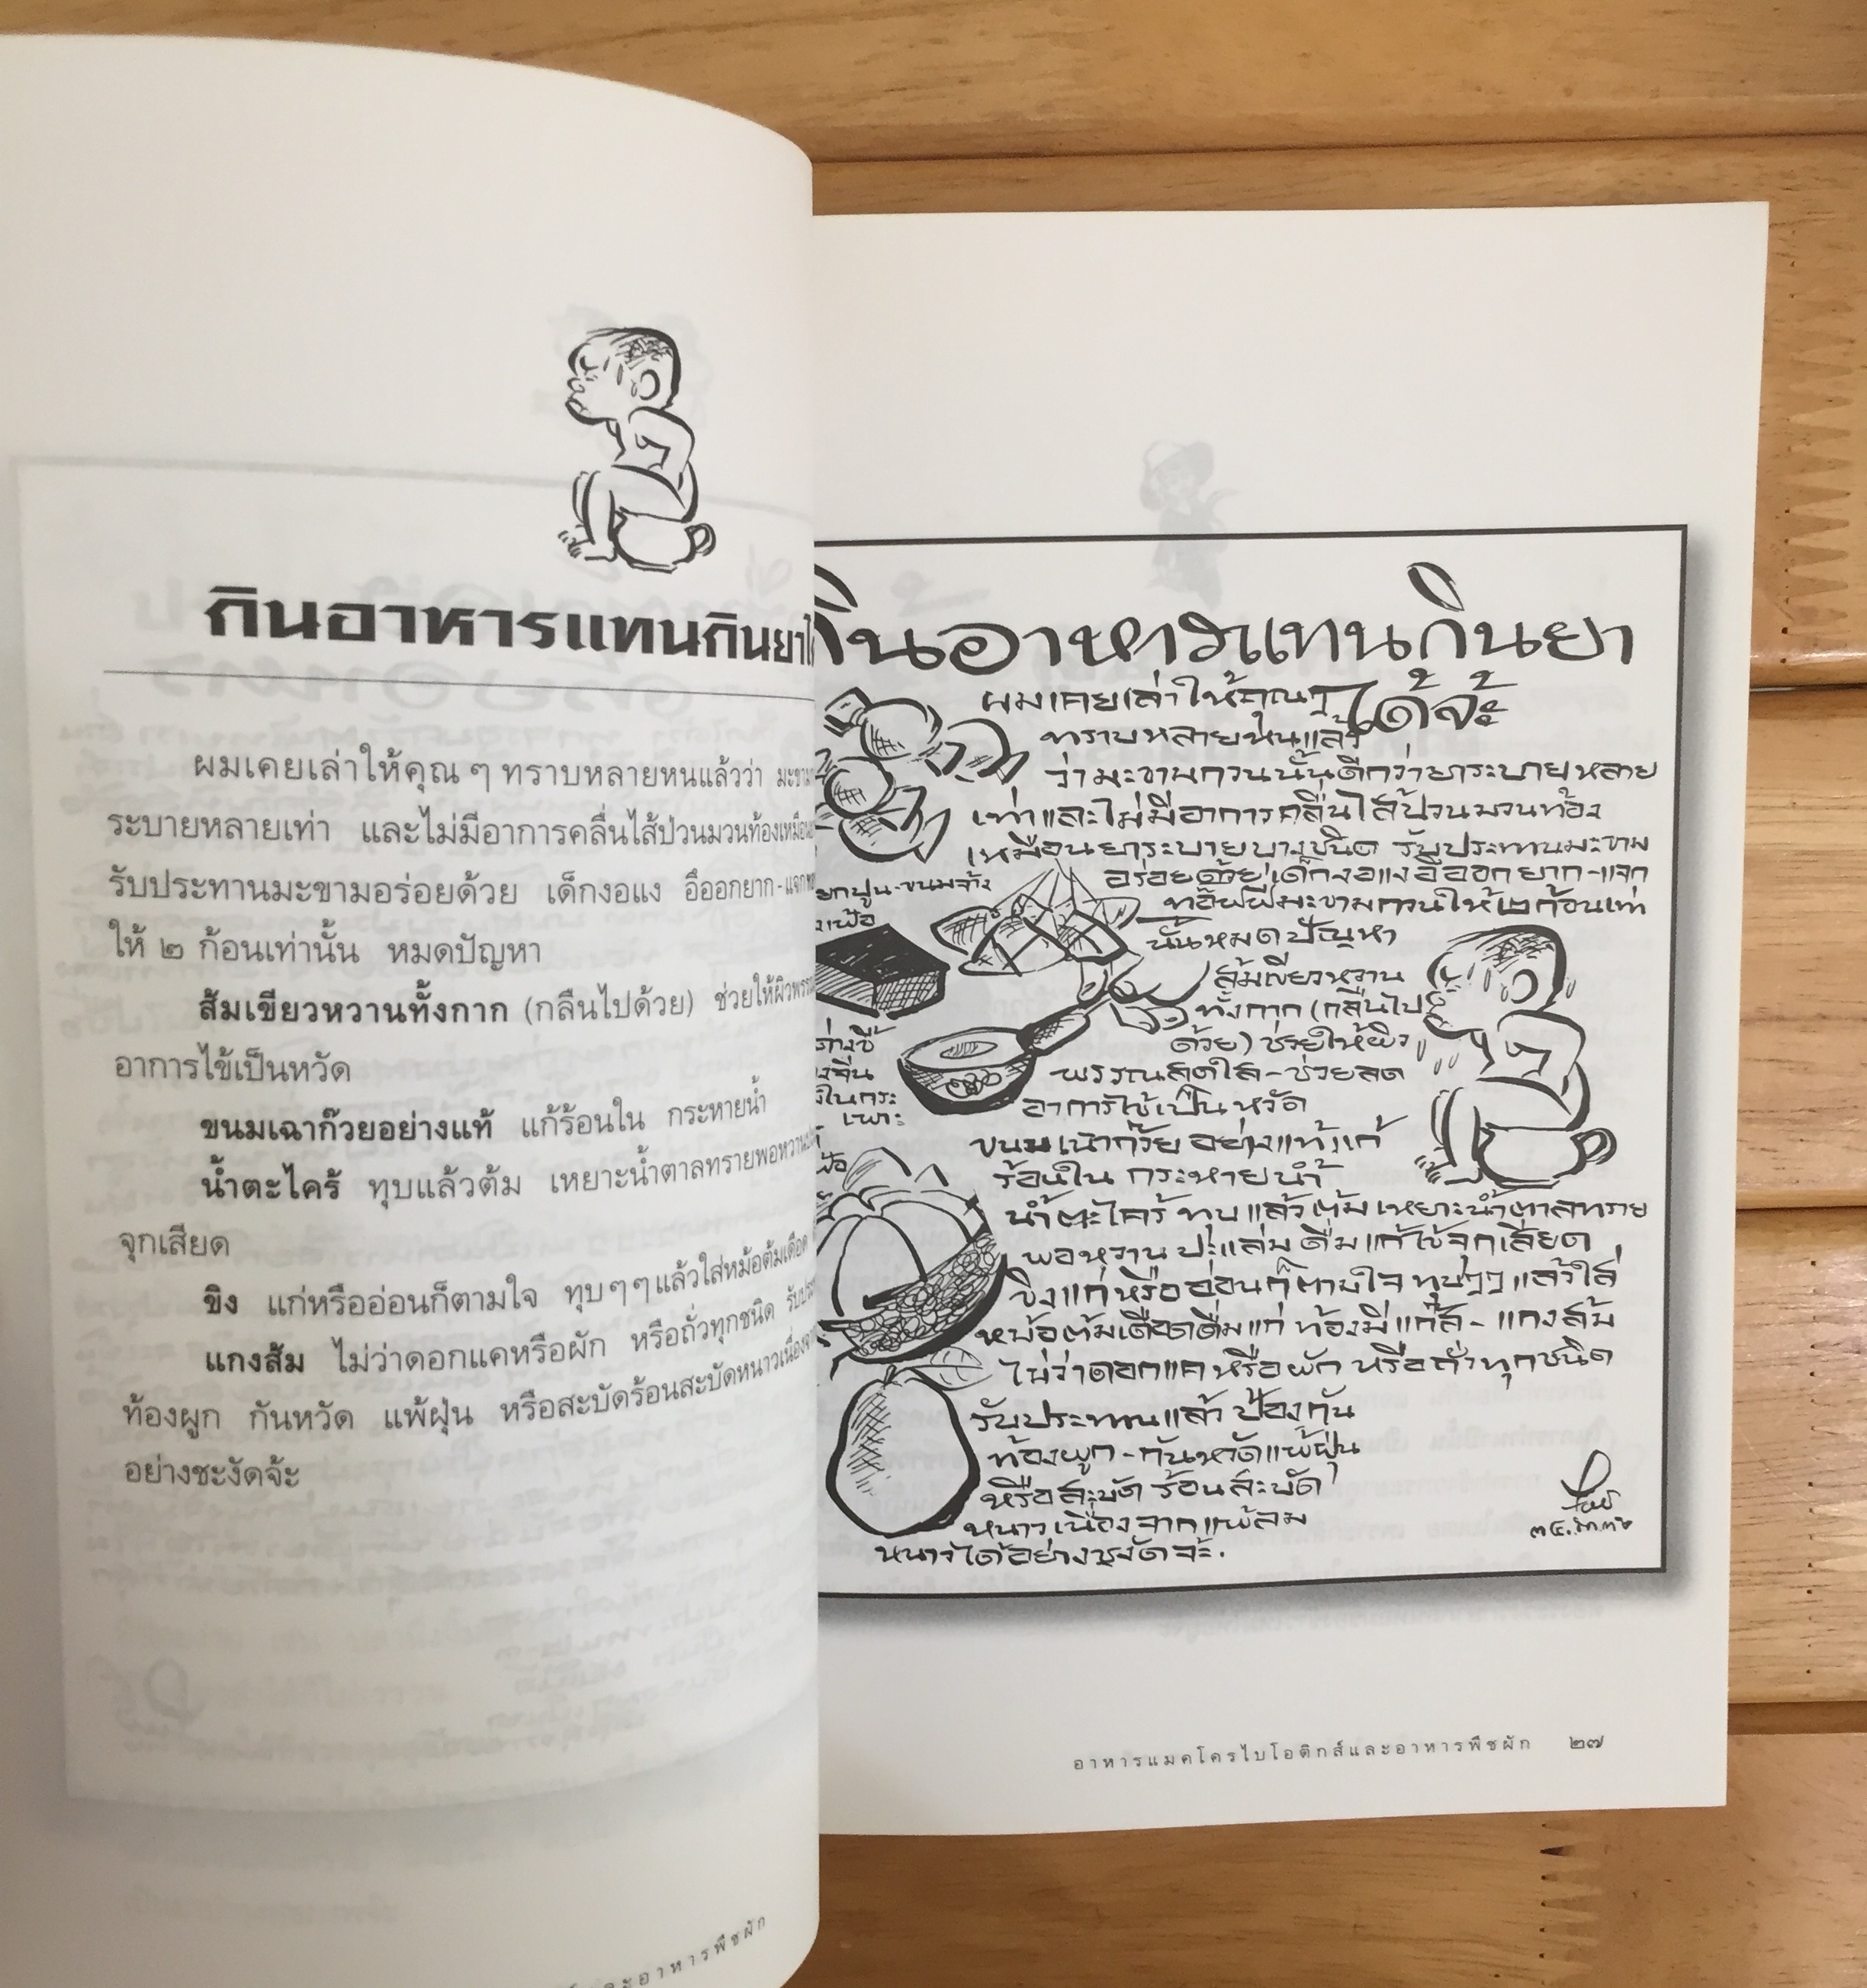 กินอาหารแทนกินยา
ผมเคยเล่าให้คุณ ๆ ทราบหลายหนแล้วว่า
ระบายหลายเท่า และไม่มีอาการคลื่นไส้ป่วนมวนท้องเหมือน
รับประทานมะขามอร่อยด้วย เด็กงอแง อึออกยาก-แจก
ให้ ๒ ก้อนเท่านั้น หมดปัญหา
ส้มเขียวหวานทั้งกาก (กลืนไปด้วย) ช่วยให้ผิวพรรณ
อาการไข้เป็นหวัด
ขนมเฉาก๊วยอย่างแท้ แก้ร้อนใน กระหายน้ำ
น้ำตะไคร้ ทุบแล้วต้ม เหยาะน้ำตาลทรายพอหวาน
จุกเสียด
ขิง แก่หรืออ่อนก็ตามใจ ทุบๆๆแล้วใส่หม้อต้มเดือด
แกงส้ม ไม่ว่าดอกแคหรือผัก หรือถั่วทุกชนิด รับประ
ท้องผูก กันหวัด แพ้ฝุ่น หรือสะบัดร้อนสะบัดหนาวเนื่องจา
อย่างชะงัดจ้ะ
และอาหารพืชผัก
กินอาหารแทนกินยา
ได้จ้ะ
ผมเคยเล่าให้คุณๆ
ทราบหลายหนแล้ว
ว่ามะขามกวนนั้นดีกว่ายาระบายหลาย
เท่าและไม่มีอาการคลื่นไส้ป่วนมวนท้อง
เหมือนยาระบายบางชนิด รับประทานมะขาม
อร่อยด้วย เด็กงอแงอึออกยาก-แจก
ท๊อฟฟี่มะขามกวนให้๒ก้อนเท่า
นั้นหมดปัญหา
ส้มเขียวหวาน
ทั้งกาก (กลืนไป
ด้วย) ช่วยให้ผิว
พรรณสดใส-ช่วยลด
อาการไข้เป็นหวัด
ขนมเฉาก๊วย อย่างแท้แก้
ร้อนใน กระหายน้ำ
น้ำตะไคร้ ทุบแล้วต้ม เหยาะน้ำตาลทราย
พอหวาน ปะแล่ม ดื่มแก้ไข้จุกเสียด
ขิงแก่หรืออ่อนก็ตามใจ ทุบๆๆ แล้วใส่
หม้อต้มเดือดดื่มแก่ ท้องมีแก๊ส - แกงส้ม
ไม่ว่าดอกแค หรือผัก หรือถั่วทุกชนิด
รับประทานแล้ว ป้องกัน
ท้องผูก-กันหวัดแพ้ฝุ่น
หรือสะบัด ร้อนสะบัด
หนาวเนื่องจากแพ้ลม
หนาวได้อย่างชงัดจ้ะ.
ขนมจ้าง
งในกระ
เพาะ
อาหารแมคโครไบโอติกส์และอาหารพืชผัก ๒๗